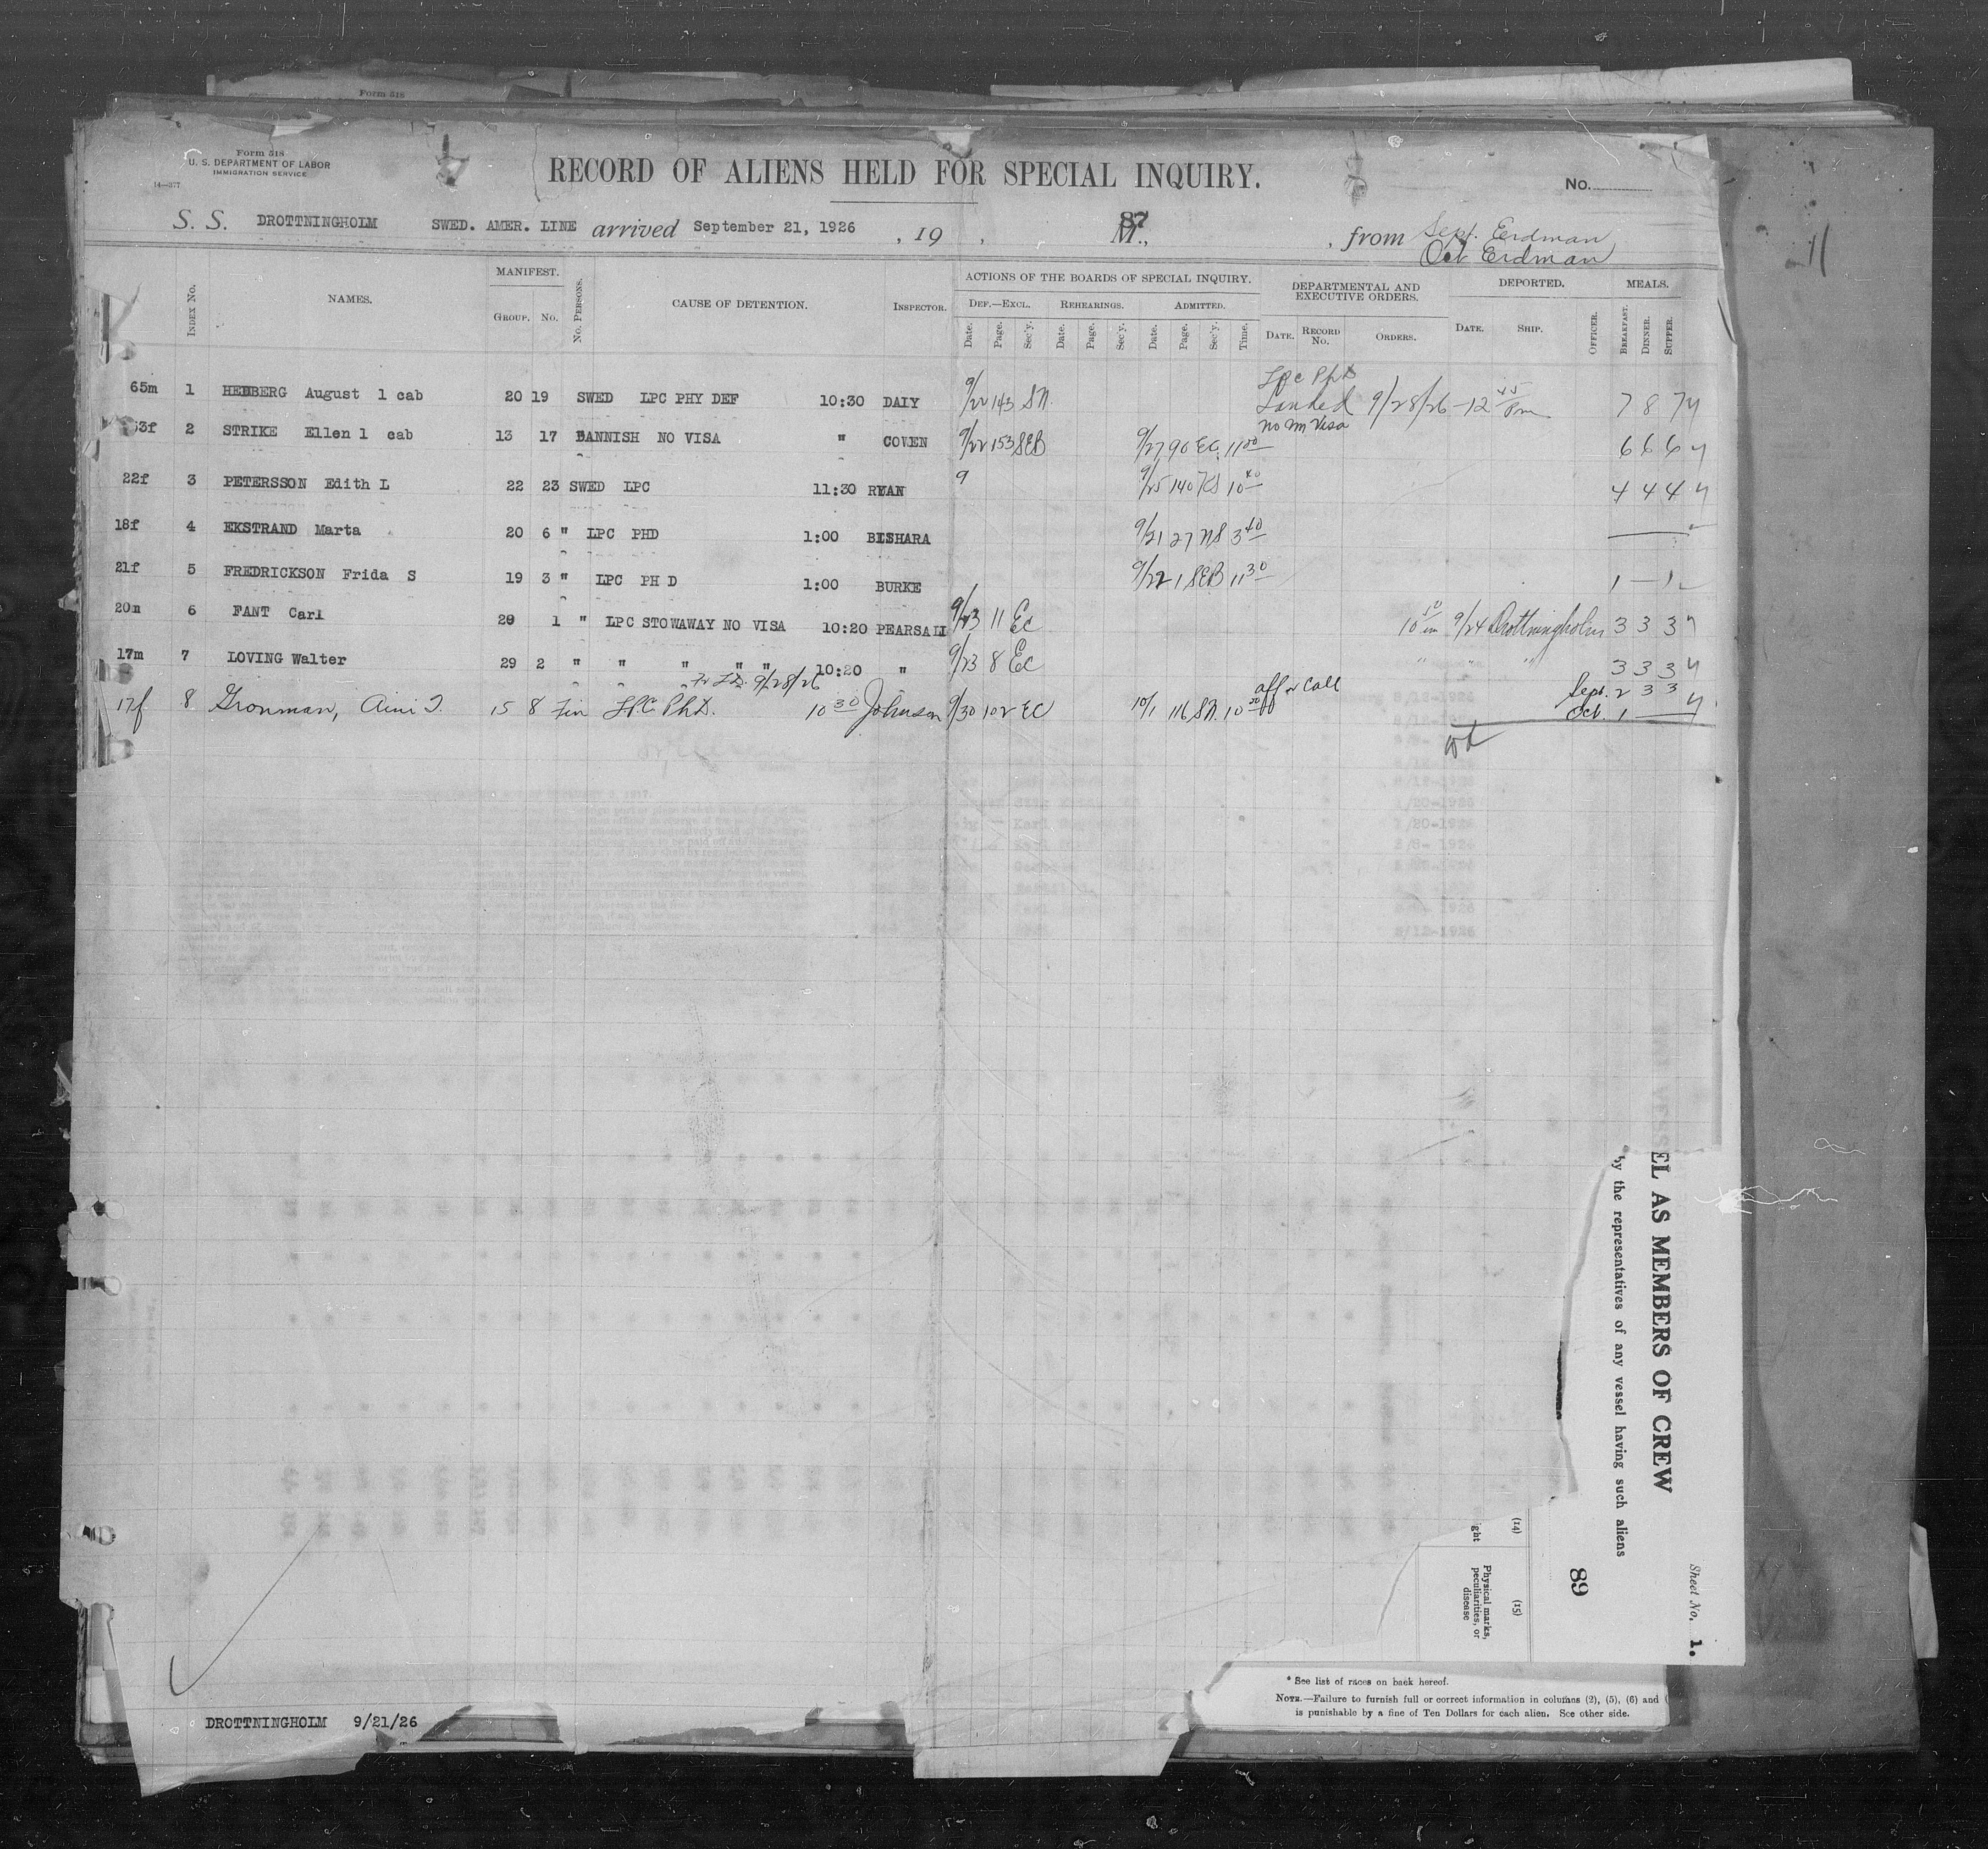 Form 518
Form 518
U. S. DEPARTMENT OF LABOR
IMMIGRATION SERVICE
14—377
RECORD OF ALIENS HELD FOR SPECIAL INQUIRY.
No.
S. S. DROTTNINGHOLM SWED. AMER. LINE arrived September 21, 1926 , 19 , 87 M., , from Sept. Erdman
Oct Erdman
INDEX No. NAMES. MANIFEST. GROUP. No. No. PERSONS. CAUSE OF DETENTION. INSPECTOR.
ACTIONS OF THE BOARDS OF SPECIAL INQUIRY. DEF.—EXCL. REHEARINGS. ADMITTED.
Date. Page. Sec'y. Date. Page. Sec'y. Date. Page. Sec'y. Time.
DEPARTMENTAL AND EXECUTIVE ORDERS. DATE. RECORD No. ORDERS.
DEPORTED. DATE. SHIP. OFFICER. MEALS. BREAKFAST. DINNER. SUPPER.
LPC Pht
65m 1 HEDBERG August 1 cab 20 19 SWED LPC PHY DEF 10:30 DALY 9/22 143 SN. Landed 9/28/26 - 12 45 Pm 7 8 7 4
no Im Visa
53f 2 STRIKE Ellen 1 cab 13 17 DANNISH NO VISA " COWEN 9/22 153 SEB 9/27 90 EC. 11 00 6 6 6 4
22f 3 PETERSSON Edith L 22 23 SWED LPC 11:30 RYAN 9 9/25 140 KS 10 40 4 4 4 4
18f 4 EKSTRAND Marta 20 6 " LPC PHD 1:00 BISHARA 9/21 27 NS 3 40
21f 5 FREDRICKSON Frida S 19 3 " LPC PH D 1:00 BURKE 9/22 1 SEB 11 30 1 — 1
20m 6 FANT Carl 29 1 " LPC STOWAWAY NO VISA 10:20 PEARSALL 9/23 11 EC 10 50 am 9/24 Drottningholm 3 3 3 4
17m 7 LOVING Walter 29 2 " " " " " 10:20 " 9/23 8 EC " " " 3 3 3 4
9/28/26
17f 8 Gronman, Aini 15 8 Fin LPC Pht. 10 30 Johnson 9/30 102 EC 10/1 116 SN. 10 20 aff or call Sept. 2 3 3 4
Oct. 1
EL AS MEMBERS OF CREW
by the representatives of any vessel having such aliens
Sheet No. 1.
89
(14)
ight
(15)
Physical marks, peculiarities, or disease
* See list of races on back hereof.
NOTE.—Failure to furnish full or correct information in columns (2), (5), (6) and (
is punishable by a fine of Ten Dollars for each alien. See other side.
DROTTNINGHOLM 9/21/26